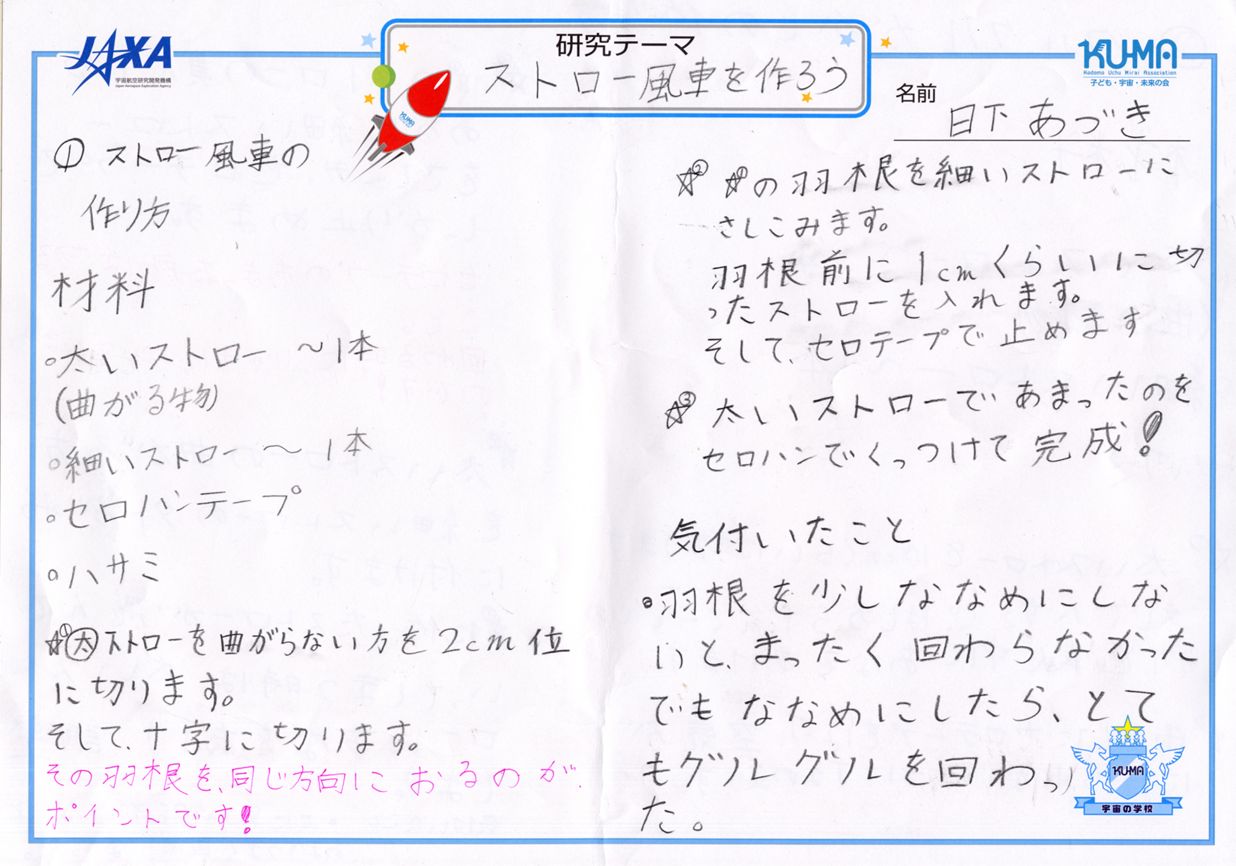 JAXA
宇宙航空研究開発機構
Japan Aerospace Exploration Agency
研究テーマ
ストロー風車を作ろう
KUMA
Kodomo Uchu Mirai Association
子ども・宇宙・未来の会
名前
日下 あづき
① ストロー風車の
作り方
材料
○太いストロー 〜1本
(曲がる物)
○細いストロー〜1本
○セロハンテープ
○ハサミ
☆1 太ストローを曲がらない方を2cm位
に切ります。
そして、十字に切ります。
その羽根を、同じ方向に おるのが、
ポイントです!
☆2 ☆1の羽根を細いストローに
さしこみます。
羽根前に1cmくらいいに切
ったストローを入れます。
そして、セロテープで止めます
☆3 太いストローであまったのを
セロハンでくっつけて完成!
気付いたこと
●羽根を少しななめにしな
いと、まったく回わらなかった
でもななめにしたら、とて
もグルグルを回わっ
た。
KUMA
KUMA
宇宙の学校